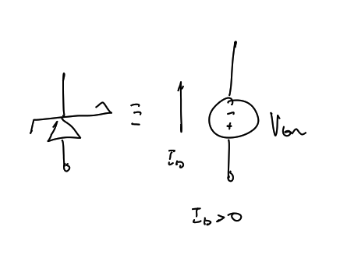 ≡
I_D
-
+
V_Bn
I_D > 0